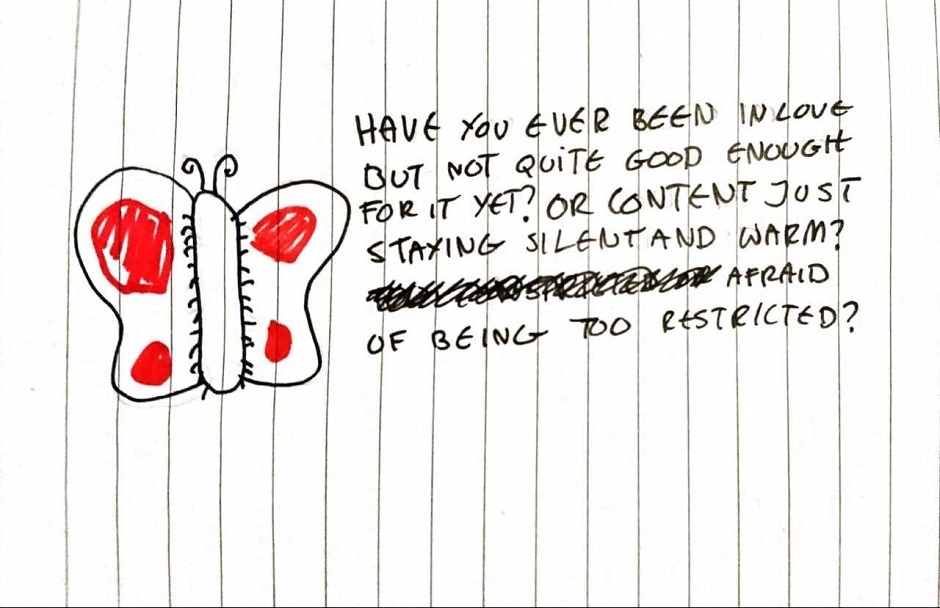 HAVE YOU EVER BEEN IN LOVE
BUT NOT QUITE GOOD ENOUGH
FOR IT YET? OR CONTENT JUST
STAYING SILENT AND WARM?
AFRAID
OF BEING TOO RESTRICTED?